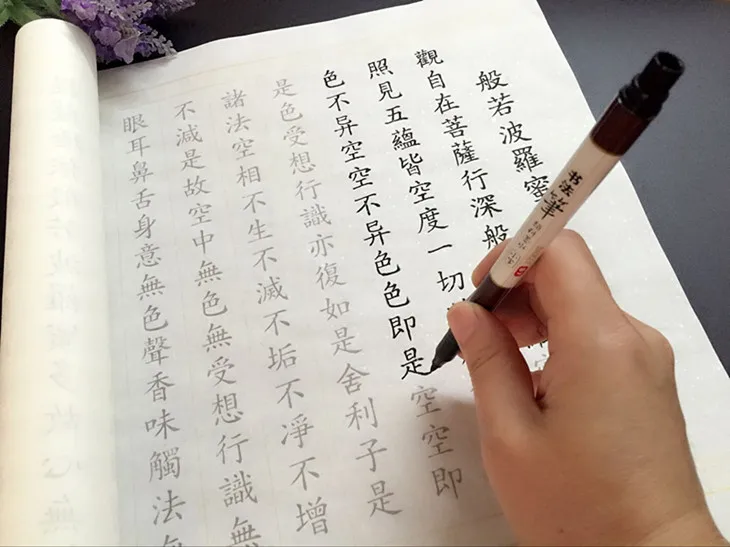 般若波羅蜜
觀自在菩薩行深般
照見五蘊皆空度一切
色不异空空不异色色即是空空即
是色受想行識亦復如是舍利子是
諸法空相不生不滅不垢不淨不增
不減是故空中無色無受想行識無
眼耳鼻舌身意無色聲香味觸法無
书法筆